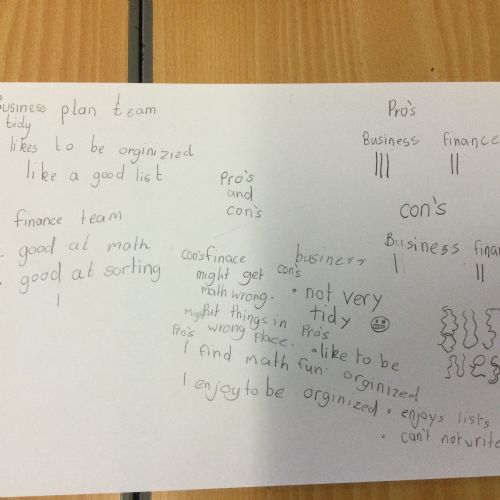 Business plan team
tidy
likes to be orginizied
like a good list
finance team
. good at math
. good at sorting
Pro's
and
con's
Pro's
Business finance
con's
Business finan
con's finace
might get
math wrong.
might Put things in
wrong place.
Pro's
I find math fun.
I enjoy to be orginized
business
con's
• not very
tidy
Pro's
• like to be
orginized
• enjoys lists
• can't not write